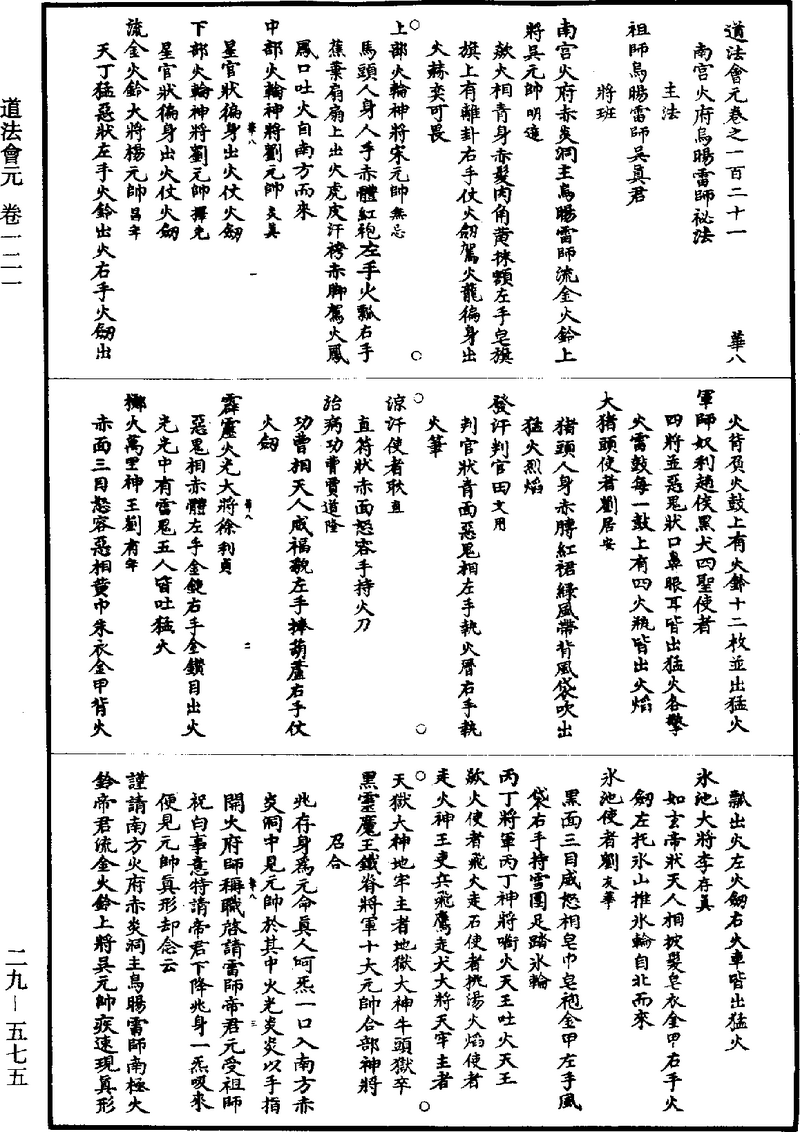 道法會元 卷一二一
二九－五七五
道法會元卷之一百二十一 華八
南宮火府烏暘雷師祕法
主法
祖師烏暘雷師吳真君
將班
南宮火府赤炎洞主烏暘雷師流金火鈴上
將吳元帥明遠
欻火相青身赤髮肉角黃抹額左手皂旗
旗上有離卦右手仗火劔駕火龍徧身出
火赫奕可畏
上部火輪神將宋元帥無忌
馬頭人身人手赤體紅袍左手火瓢右手
蕉葉扇扇上出火虎皮汗袴赤脚駕火鳳
鳳口吐火自南方而來
中部火輪神將劉元帥炎真
星官狀徧身出火仗火劔
下部火輪神將劉元帥擇先
星官狀徧身出火仗火劔
流金火鈴大將楊元帥昌年
天丁猛惡狀左手火鈴出火右手火劔出
火背負火鼓上有火鈴十二枚並出猛火
軍師奴利趙侯黑犬四聖使者
四將並惡鬼狀口鼻眼耳皆出猛火各擎
火雷鼓每一鼓上有四火瓶皆出火焰
大猪頭使者劉居安
猪頭人身赤膊紅裙綠風帶背風袋吹出
猛火烈焰
發汗判官田文用
判官狀青面惡鬼相左手執火曆右手執
火筆
涼汗使者耿直
直符狀赤面怒容手持火刀
治病功曹賈道隆
功曹相天人威福貌左手捧葫蘆右手仗
火劔
霹靂火光大將徐利貞
惡鬼相赤體左手金鏡右手金鑽目出火
光光中有雷鬼五人皆吐猛火
擲火萬里神王劉有年
赤面三目怒容惡相黃巾朱衣金甲背火
瓢出火左火劔右火車皆出猛火
氷池大將李存真
如玄帝狀天人相披髮皂衣金甲右手火
劔左托氷山推氷輪自北而來
氷池使者劉友華
黑面三目威怒相皂巾皂袍金甲左手風
袋右手持雪團足踏氷輪
丙丁將軍丙丁神將啣火天王吐火天王
欻火使者飛火走石使者挑湯火焰使者
走火神王吏兵飛鷹走犬大將天牢主者
天獄大神地牢主者地獄大神牛頭獄卒
黑靈魔王鐵脊將軍十大元帥合部神將
召合
兆存身為元命真人呵炁一口入南方赤
炎洞中見元帥於其中火光炎炎以手指
開火府師稱職啓請雷師帝君元受祖師
祝白事意特請帝君下降兆身一炁吸來
便見元帥真形却念云
謹請南方火府赤炎洞主烏暘雷師南極火
鈴帝君流金火鈴上將吳元帥疾速現真形